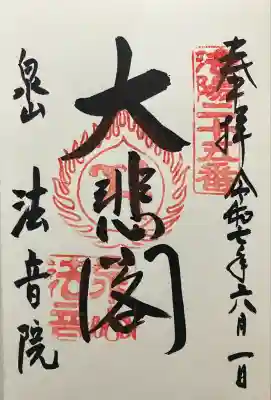 奉拝 令和七年六月一日
洛陽二十五番
大悲閣
泉山 法音院
法音